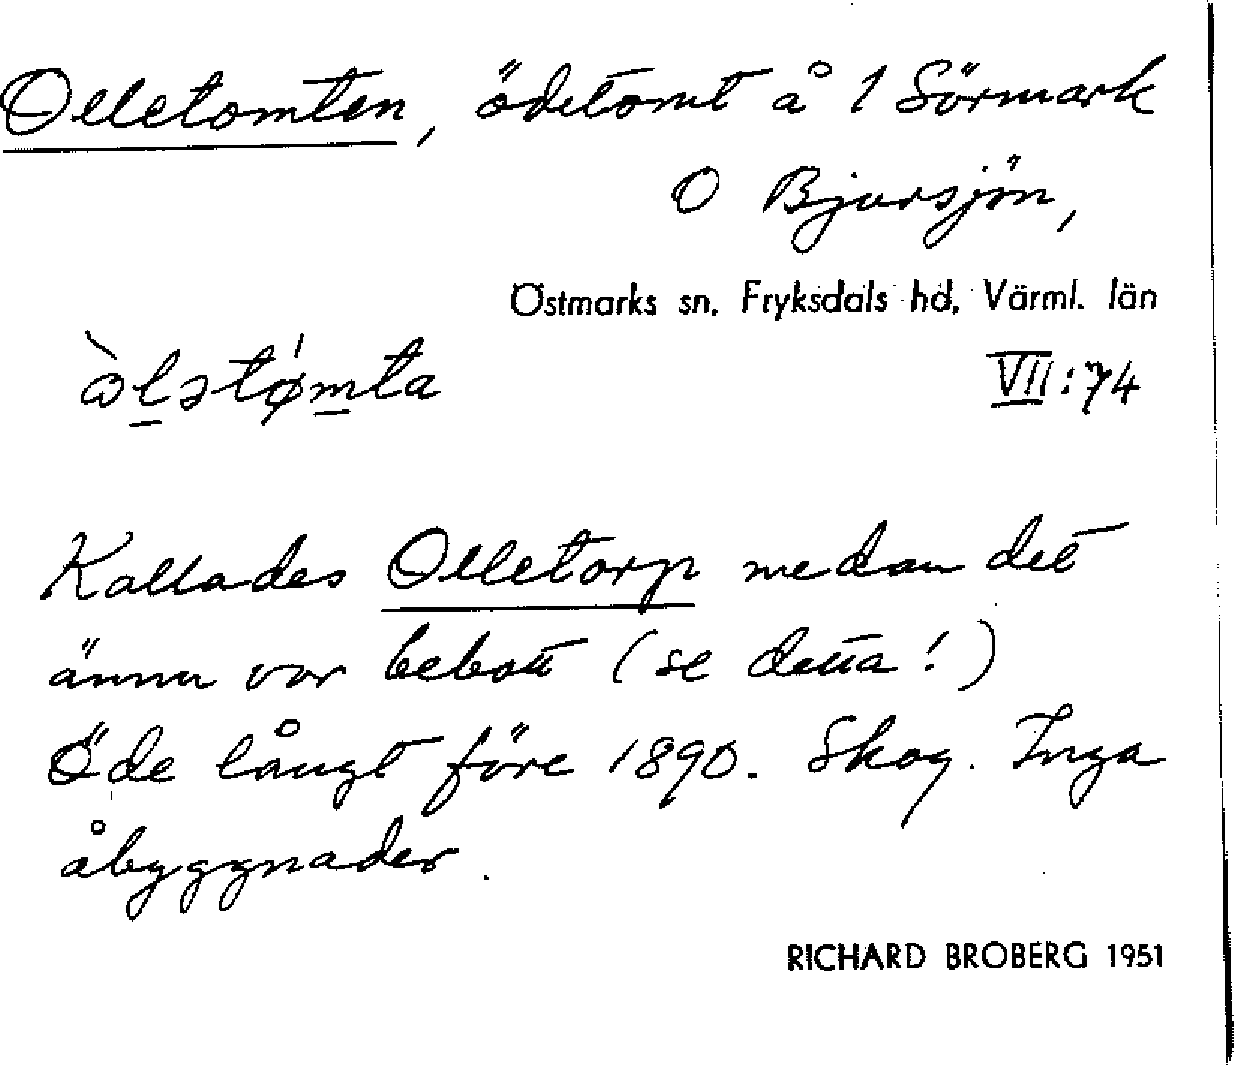 Olletomten, ödetomt å 1 Sörmark
O Bjursjön,
Östmarks sn, Fryksdals hd, Värml. län
VII:74
Kallades Olletorp medan det
ännu var bebott (se detta!)
Öde långt före 1890. Skog. Inga
åbyggnader.
RICHARD BROBERG 1951